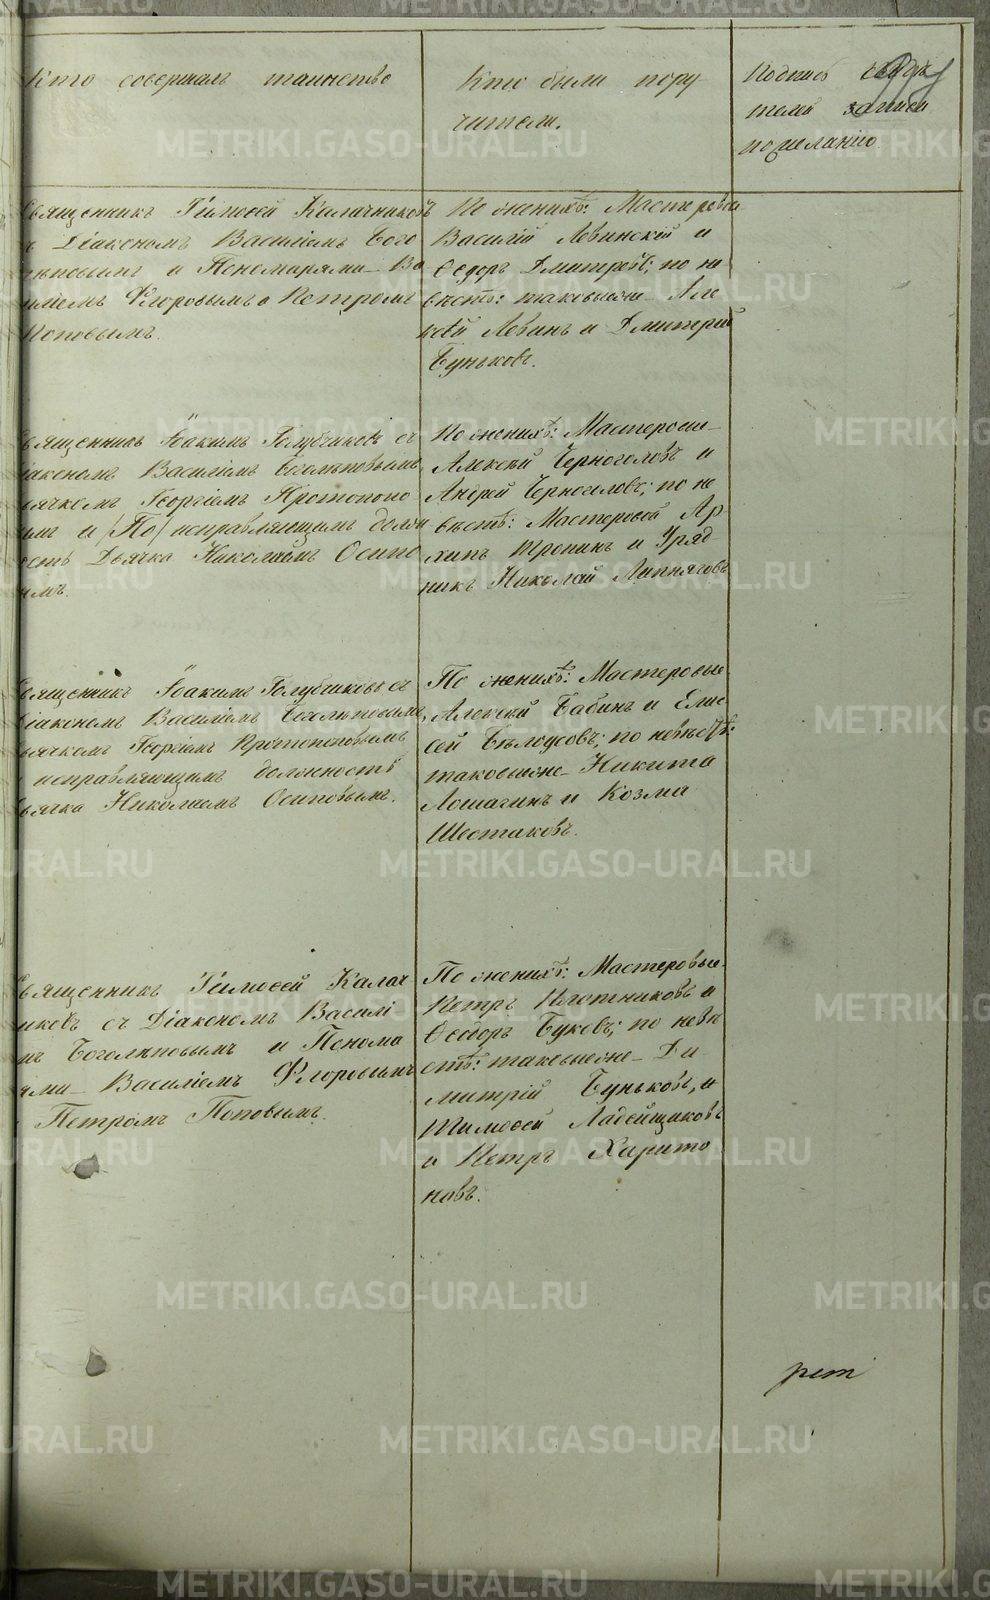 Кто совершалъ таинство
Кто были пору
чители.
Подпись
телей записи
по желанію
Священникъ Тимоѳей Калачниковъ
съ Діакономъ Василіемъ Бого
лѣповымъ и Пономарями Ва
силіемъ Флоровымъ и Петромъ
Поповымъ.
По женихѣ: Мастеровые
Василій Левинской и
Ѳедоръ Дмитрей; по не
вѣстѣ: таковыеже Але
ксѣй Левинъ и Дмитрій
Буньковъ.
Священникъ Іоакимъ Голубчиковъ съ
Діакономъ Василіемъ Боголѣповымъ
Дьячкомъ Георгіемъ Протопопо
вымъ и (По) исправляющимъ долж
ность Дьячка Николаемъ Осипо
вымъ.
По женихѣ: Мастеровые
Алексѣй Черноголовъ и
Андрей Черноголовъ; по не
вѣстѣ: Мастеровой Ар
хипъ Тронинъ и Уряд
никъ Николай Липняговъ
Священникъ Іоакимъ Голубчиковъ съ
Діакономъ Василіемъ Боголѣповымъ,
Дьячкомъ Георгіемъ Протопоповымъ
и исправляющимъ должность
Дьячка Николаемъ Осиповымъ.
По женихѣ: Мастеровые
Алексѣй Бабинъ и Ели
сей Бѣлоусовъ; по невѣстѣ:
таковыеже Никита
Лошагинъ и Козма
Шестаковъ.
Священникъ Тимоѳей Калач
никовъ съ Діакономъ Василі
емъ Боголѣповымъ и Понома
рями Василіемъ Флоровымъ
и Петромъ Поповымъ.
По женихѣ: Мастеровые
Петръ Плотниковъ и
Ѳедоръ Буковъ; по невѣ
стѣ: таковыеже Ди
митрій Буньковъ, и
Тимоѳей Ладейщиковъ
и Петръ Харито
новъ.
METRIKI.GASO-URAL.RU